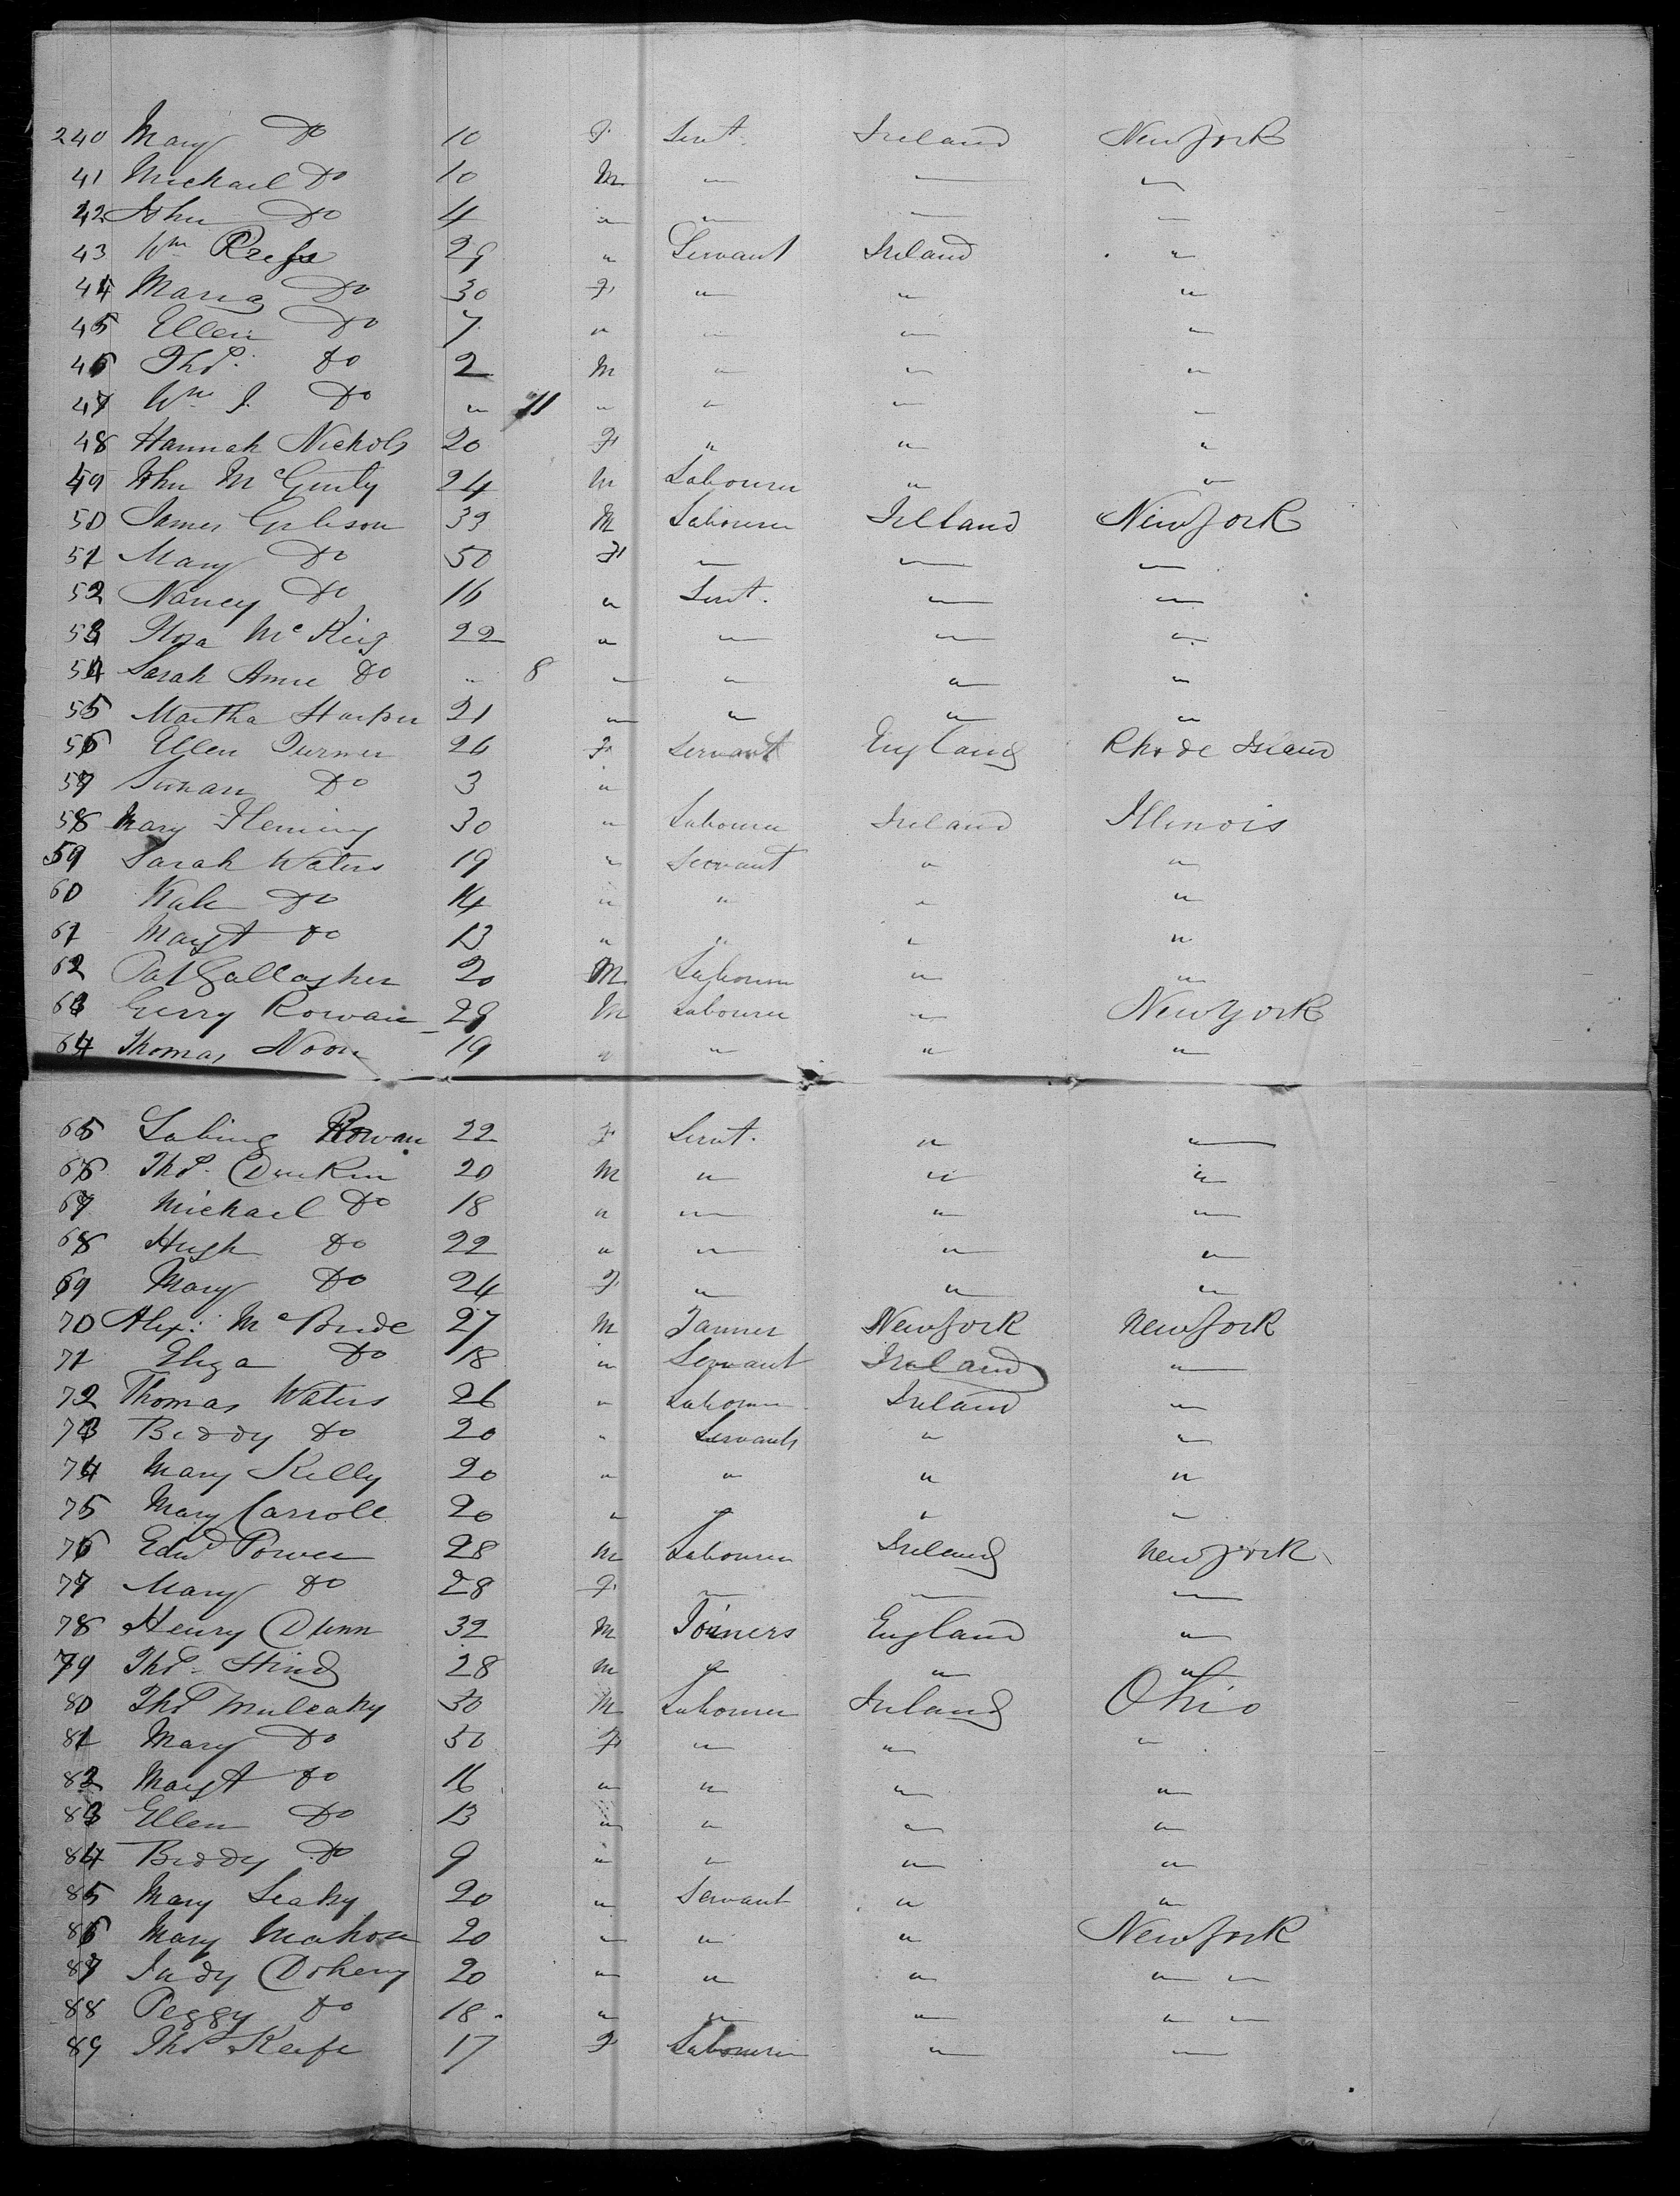 240 Mary Do 10 F Servt. Ireland New York
41 Michael Do 10 M " " "
42 John Do 4 " " " "
43 Wm 29 " Servant Ireland "
44 Maria Do 30 F " " "
45 Ellen Do 7 " " " "
46 Thos. Do 2 M " " "
47 Wm J. Do " 11 " " " "
48 Hannah Nichols 20 F " " "
49 John McGinty 24 M Labourer " "
50 James Gibson 33 M Labourer Ireland New York
51 Mary Do 50 F " " "
52 Nancy Do 16 " Servt. " "
53 Mc 22 " " " "
54 Sarah Anne Do " 8 " " " "
55 Martha Harper 21 " " " "
56 Ellen Turner 26 F Servant England Rhode Island
57 Susan Do 3 "
58 Mary Fleming 30 " Labourer Ireland Illinois
59 Sarah Waters 19 " Servant " "
60 Do 14 " " " "
61 Margt Do 13 " " " "
62 Pat Gallagher 20 M Labourer " "
63 Gerry Rowan 29 M Labourer " New York
64 Thomas Noon 19 " " " "
65 Sabina Rowan 22 F Servt. " "
66 Thos. Durkin 20 M " " "
67 Michael Do 18 " " " "
68 Hugh Do 22 " " " "
69 Mary Do 24 F " " "
70 Alex: McBride 27 M Tanner New York New York
71 Eliza Do 18 " Servant Ireland "
72 Thomas Waters 26 " Labourer Ireland "
73 Biddy Do 20 " Servant " "
74 Mary Kelly 20 " " " "
75 Mary Carroll 20 " " " "
76 Edwd Power 28 M Labourer Ireland New York
77 Mary Do 28 F " " "
78 Henry Dunn 32 M Joiners England "
79 Thos. Hind 28 M " " "
80 Thos Mulcahy 30 M Labourer Ireland Ohio
81 Mary Do 30 F " " "
82 Margt Do 16 " " " "
83 Ellen Do 13 " " " "
84 Biddy Do 9 " " " "
85 Mary Leahy 20 " Servant " "
86 Mary Mahon 20 " " " New York
87 Judy Doheny 20 " " " " "
88 Peggy Do 18 " " " " "
89 Thos Keefe 17 F Labourer " "